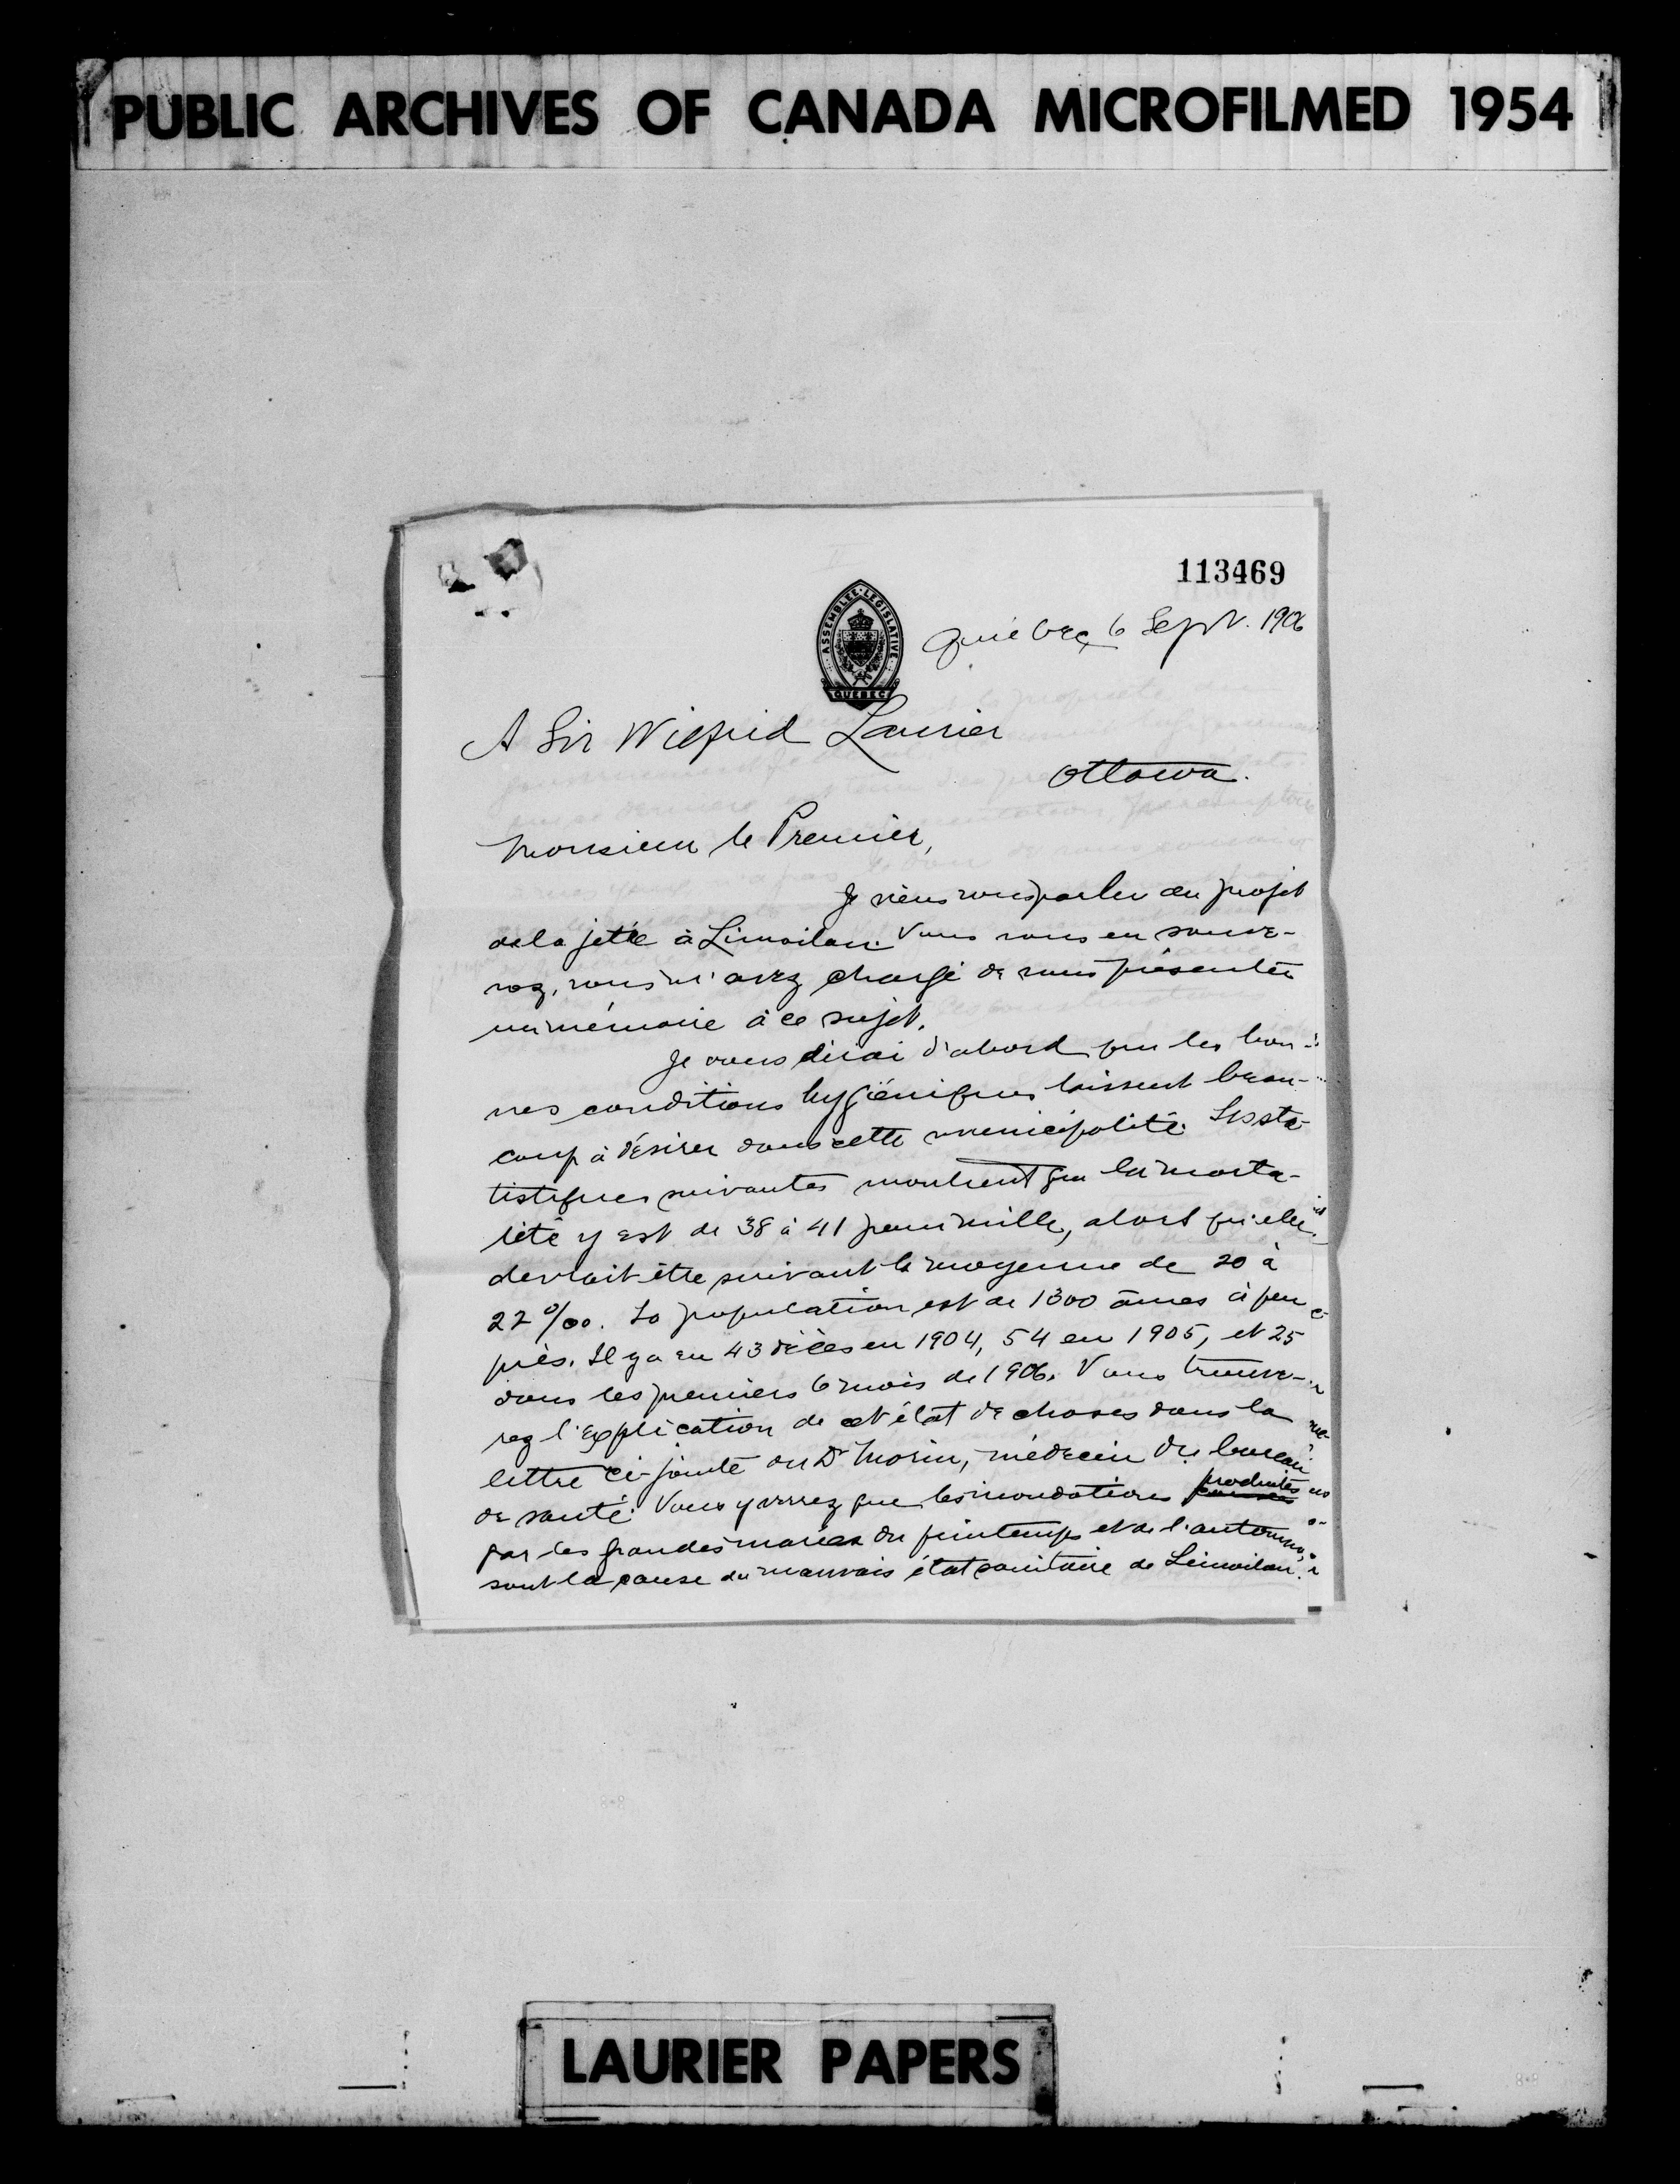 PUBLIC ARCHIVES OF CANADA MICROFILMED 1954
113469
ASSEMBLEE LEGISLATIVE
QUEBEC
Québec, 6 Sept. 1906
A Sir Wilfrid Laurier
Ottawa.
Monsieur le Premier,
Je viens vous parler du projet
de la jetée à Limoilou. Vous vous en souve-
nez, vous m'avez chargé de vous présenter
un mémoire à ce sujet.
Je vous dirai d'abord que les bon-
nes conditions hygiéniques laissent beau-
coup à désirer dans cette municipalité. Les sta-
tistiques suivantes montrent que la morta-
lité y est de 38 à 41 pour mille, alors qu'elle
devrait être suivant la moyenne de 20 à
22 ‰. La population est de 1300 âmes à peu
près. Il y a eu 43 décès en 1904, 54 en 1905, et 25
dans les premiers 6 mois de 1906. Vous trouve-
rez l'explication de cet état de choses dans la
lettre ci-jointe du Dr Morin, médecin du bureau
de santé. Vous y verrez que les inondations produites
par les grandes marées du printemps et de l'automne,
sont la cause du mauvais état sanitaire de Limoilou.
LAURIER PAPERS